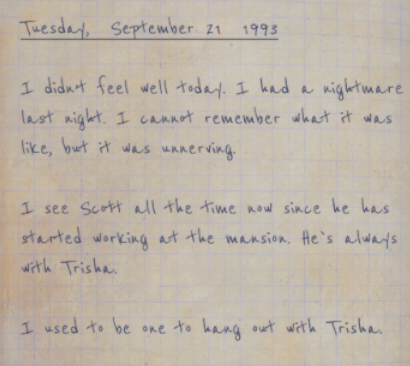 Tuesday, September 21 1993
I didn't feel well today. I had a nightmare
last night. I cannot remember what it was
like, but it was unnerving.
I see Scott all the time now since he has
started working at the mansion. He's always
with Trisha.
I used to be one to hang out with Trisha.